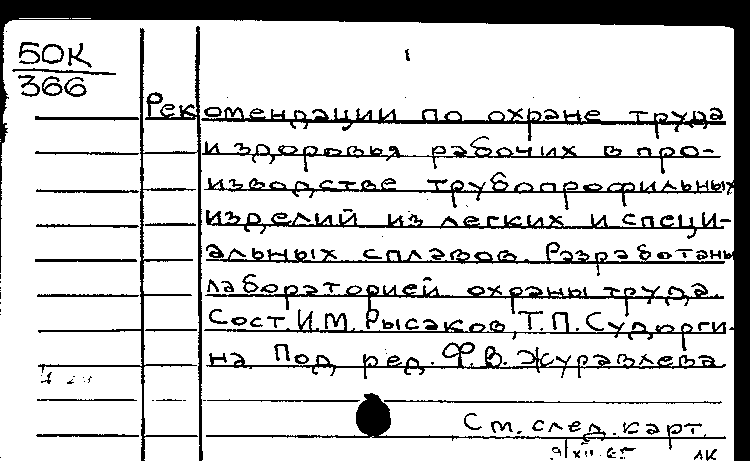 50К
366
1
Рекомендации по охране труда
и здоровья рабочих в про-
изводстве трубопрофильных
изделий из легких и специ-
альных сплавов. Разработаны
лабораторией охраны труда.
Сост. И.М. Рысаков, Т.П. Судорги-
на Под ред. Ф.В. Журавлева
См. след. карт.
9/XII-65 ЛК